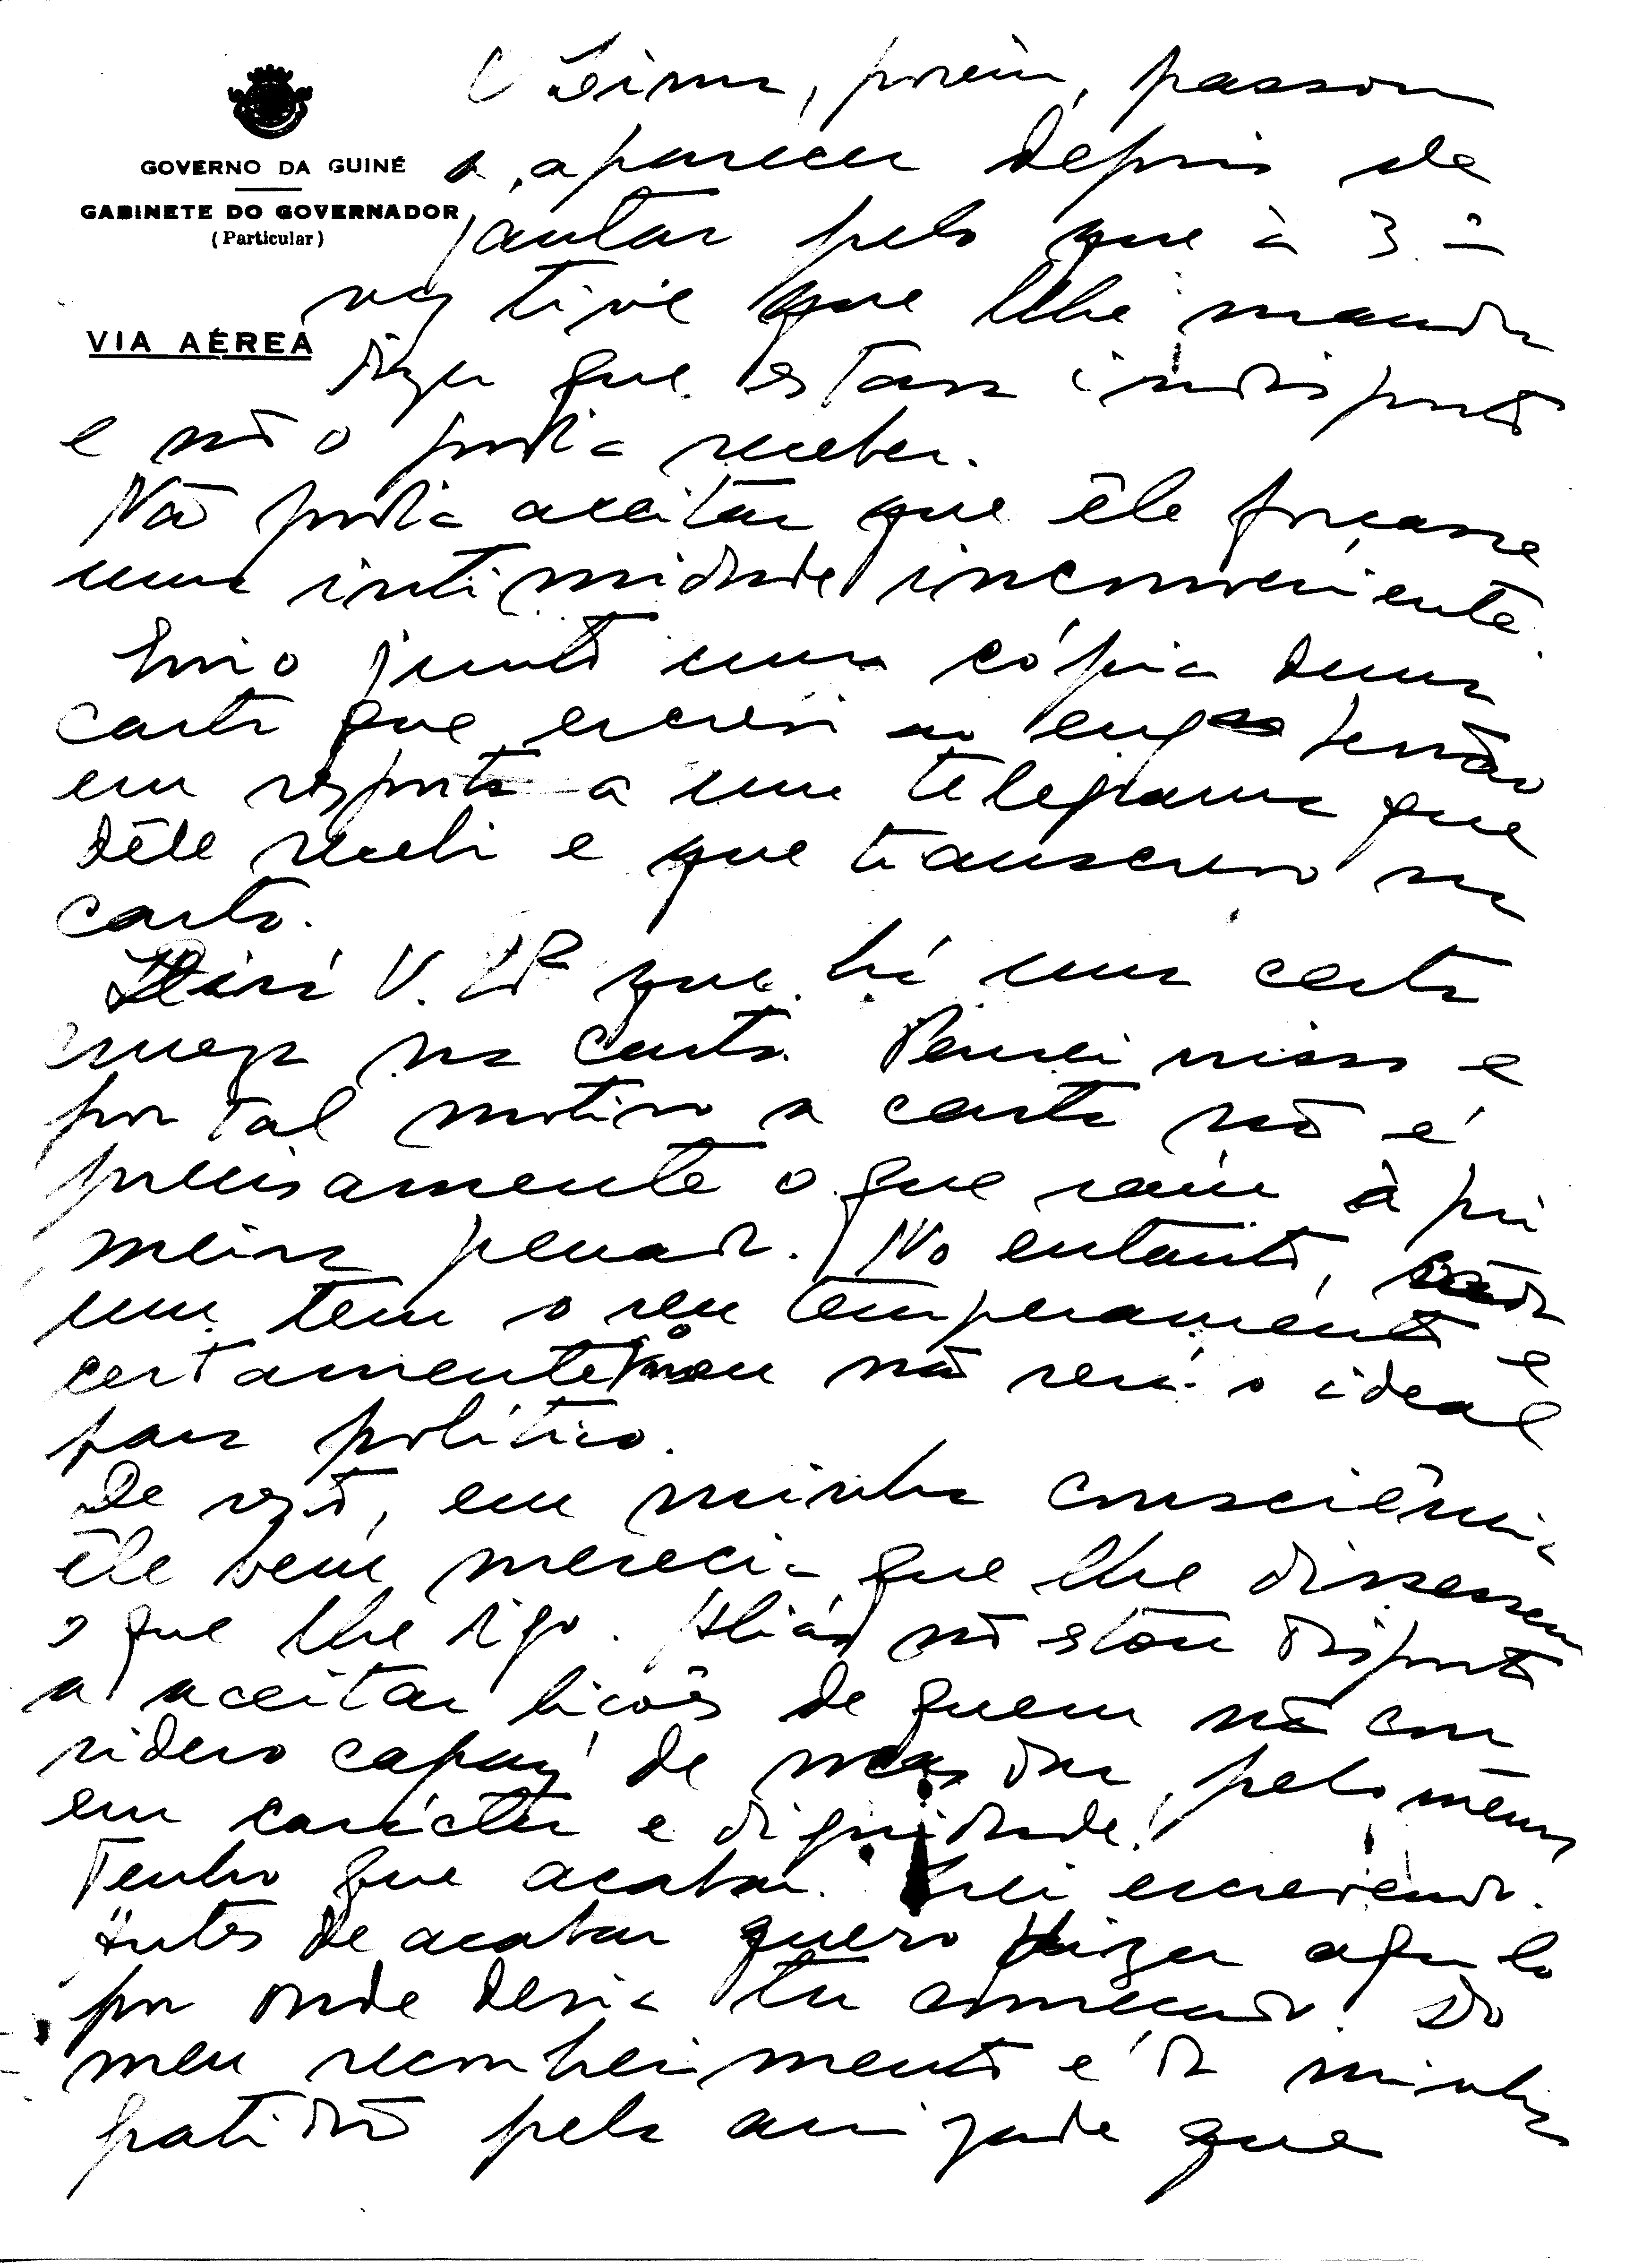 GOVERNO DA GUINÉ
GABINETE DO GOVERNADOR
(Particular)
VIA AÉREA
O Leima, porém, passou
a aparecer depois de
jantar pelo que à 3.ª
vez tive que lhe mandar
dizer que estava indisposto
e não o podia receber.
Não podia aceitar que êle forçasse
uma intimidade inconveniente.
Envio junto uma cópia duma
carta que escrevi ao eng.º
em resposta a um telegrama que
dêle recebi e que transcrevo na
carta.
Dirá V. Exª que há uma certa
crueza na carta. Pensei nisso e
por tal motivo a carta não é
precisamente o que saíu à pri
meira penada. No entanto, cada
um tem o seu temperamento e
certamente o meu não será o ideal
para político.
De resto, em minha consciência
êle bem merecia que lhe dissessem
o que lhe digo. Aliás não estou disposto
a aceitar lições de quem não con
sidero capaz de mas dar, pelo menos
em carácter e dignidade!
Tenho que acabar. Irei escrevendo.
Antes de acabar quero dizer aquilo
por onde devia ter começado. Do
meu reconhecimento e da minha
gratidão pela amizade que